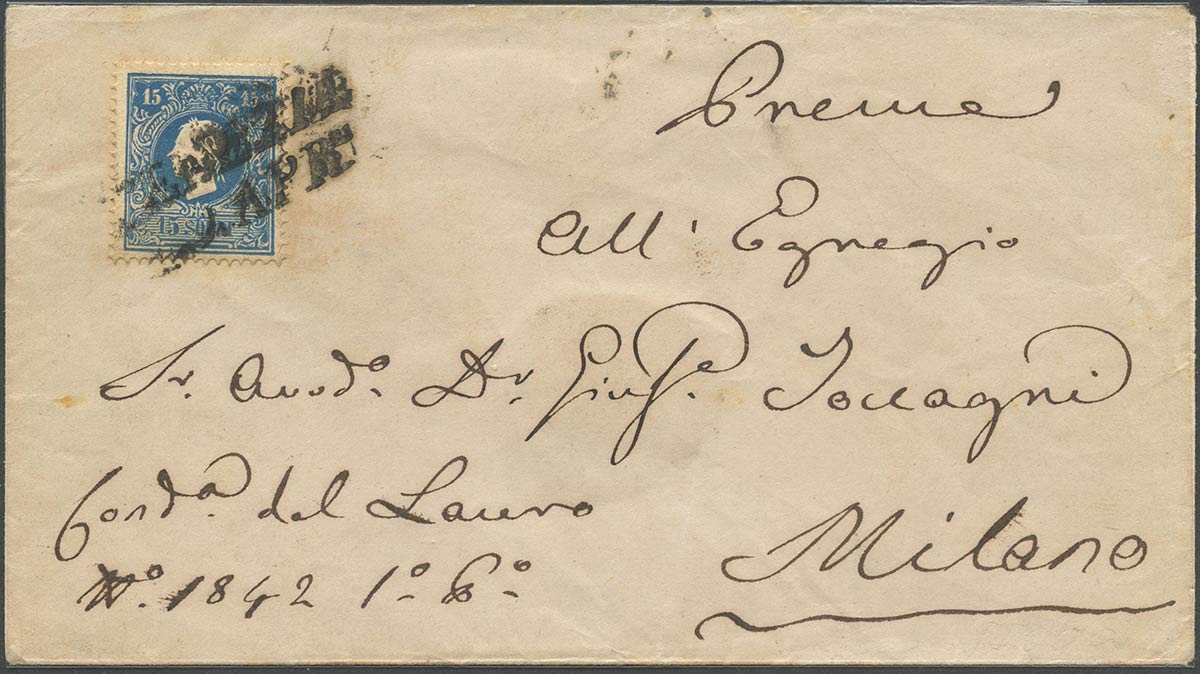 15 15
VENEZIA
APR.
15 SOLDI
Preme
All' Egregio
Sr. Avvdo. Dr. Giuse. Toccagni
Corda. del Lauro
No. 1842 1o. Po.
Milano